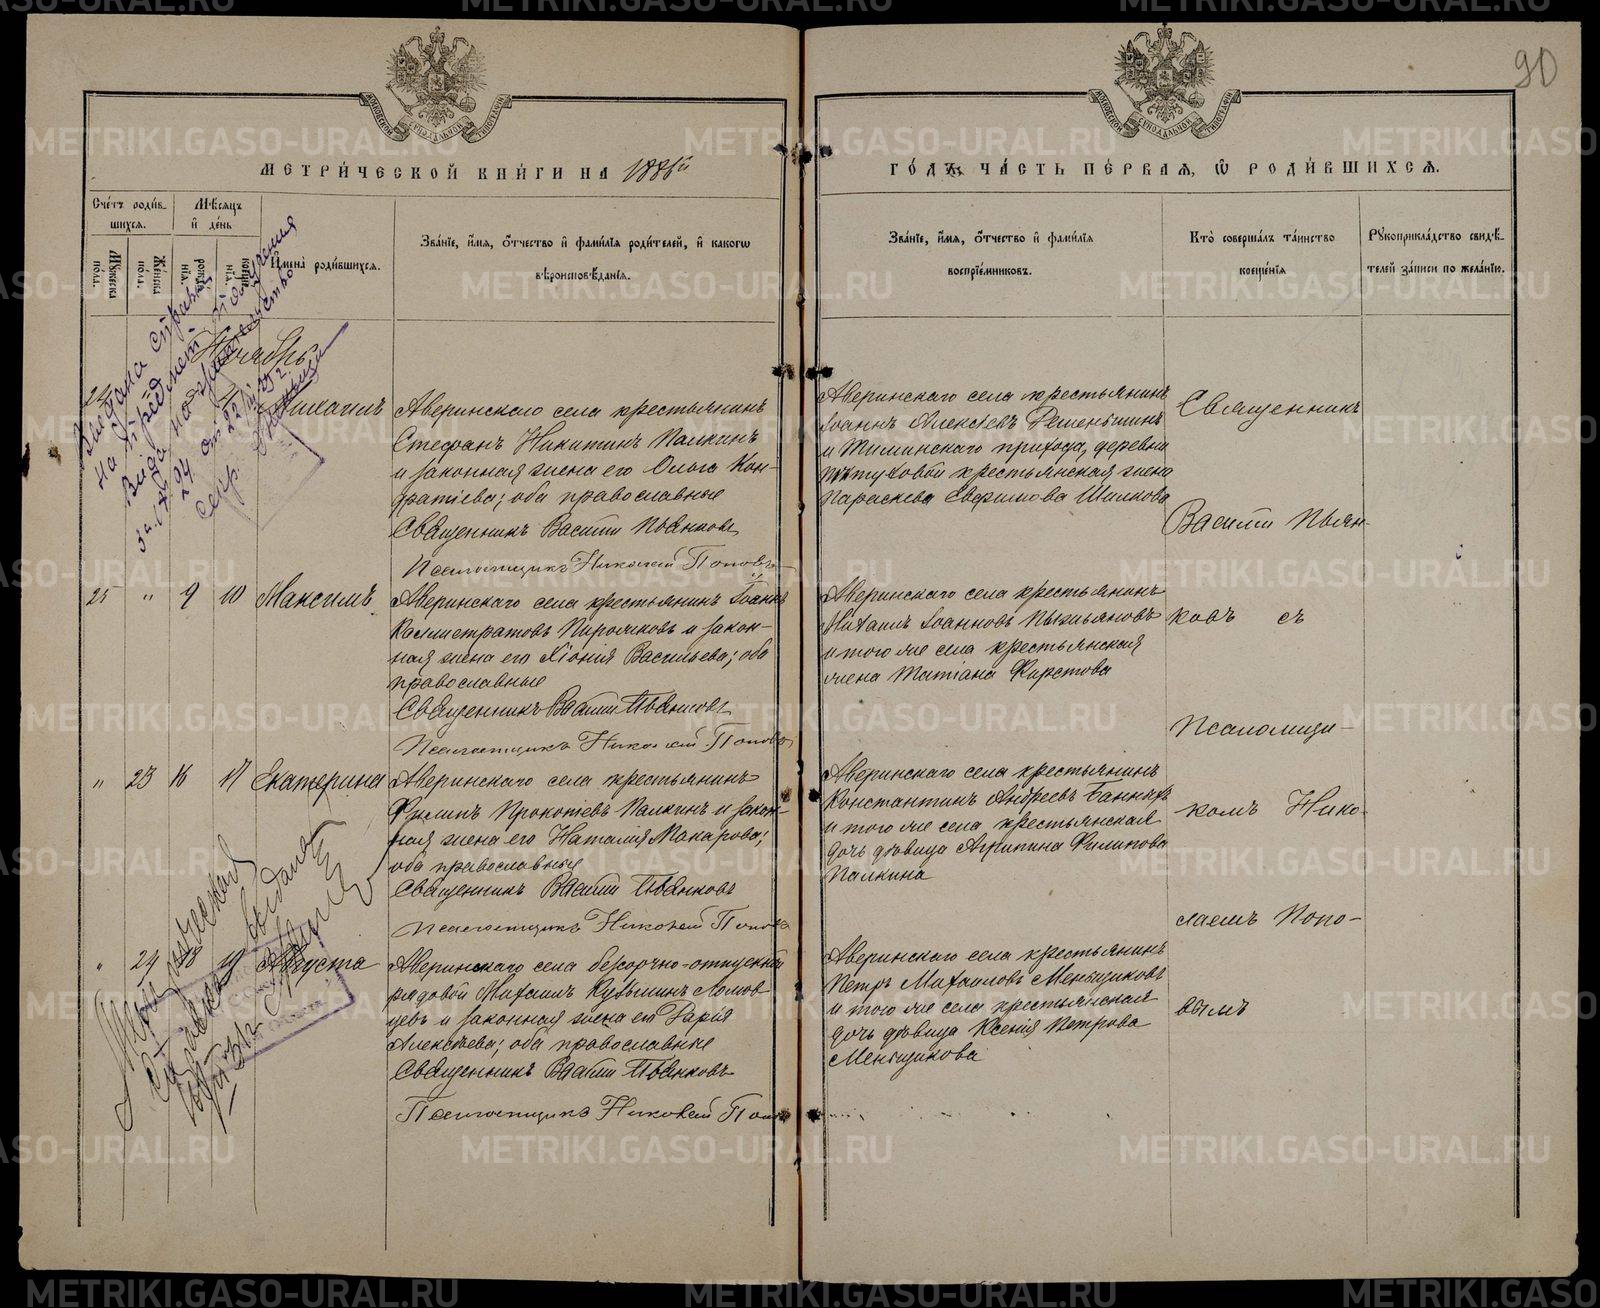 90
МЕТРИ́ЧЕСКОЙ КНИ́ГИ НА 1886й
ГО́ДЪ ЧА́СТЬ ПЕ́РВАЯ, Ѿ РОДИ́ВШИХСЯ.
Сче́тъ роди́в-
шихся.
Му́жеска по́ла.
Же́нска по́ла.
Мѣ́сяцъ
и҆ де́нь
рожде́нїѧ.
креще́нїѧ.
И҆мена̀ роди́вшихся.
Зва́нїе, и҆́мя, ѻ҆́тчество и҆ фами́лїя роди́телей, и҆ како́гѡ
вѣроисповѣ́данїѧ.
Зва́нїе, и҆́мя, ѻ҆́тчество и҆ фами́лїя
воспрїе́мниковъ.
Кто̀ соверша́лъ та́инство
креще́нїѧ
Рукоприкла́дство свидѣ́-
телей за́писи по жела́нїю.
Ноябрь
24
Михаилъ
Аверинскаго села крестьянинъ
Стефанъ Никитинъ Палкинъ
и законная жена его Ольга Кон-
дратіева; оба православные
Священникъ Василій Пьянковъ
Псаломщикъ Николай Поповъ
Аверинскаго села крестьянинъ
Іоаннъ Алексѣевъ Деменьшинъ
и Тиминскаго прихода, деревни
крестьянская жена
Параскева Евфимова Шилкова
Священникъ
Василій Пьян-
25 " 9 10 Максимъ
Аверинскаго села крестьянинъ Іоаннъ
Каллистратовъ Пироговъ и закон-
ная жена его Хіонія Васильева; оба
православные
Священникъ Василій Пьянковъ
Псаломщикъ Николай Поповъ
Аверинскаго села крестьянинъ
Михаилъ Іоанновъ Пызьяновъ
и того же села крестьянская
жена Татіана Фирстова
ковъ съ
Псаломщи-
" 23 16 17 Екатерина
Аверинскаго села крестьянинъ
Филипъ Прокопіевъ Палкинъ и закон-
ная жена его Наталія Макарова;
оба православные
Священникъ Василій Пьянковъ
Псаломщикъ Николай Поповъ
Аверинскаго села крестьянинъ
Константинъ Андреевъ Банныхъ
и того же села крестьянская
дочь дѣвица Агрипина Филипова
Палкина
комъ Нико-
лаемъ Попо-
" 24 18 19 Августа
Аверинскаго села безсрочно-отпускной
рядовой Михаилъ Кузьминъ Ломов-
цевъ и законная жена его Дарія
Алексѣева; оба православные
Священникъ Василій Пьянковъ
Псаломщикъ Николай Поповъ
Аверинскаго села крестьянинъ
Петръ Михаиловъ Меньщиковъ
и того же села крестьянская
дочь дѣвица Ксенія Петрова
Меньщикова
вымъ
Выдана справка
на предмет получения
Вида на жительство
за № 94 от 22
Секр.
Метрическая
выдана
METRIKI.GASO-URAL.RU